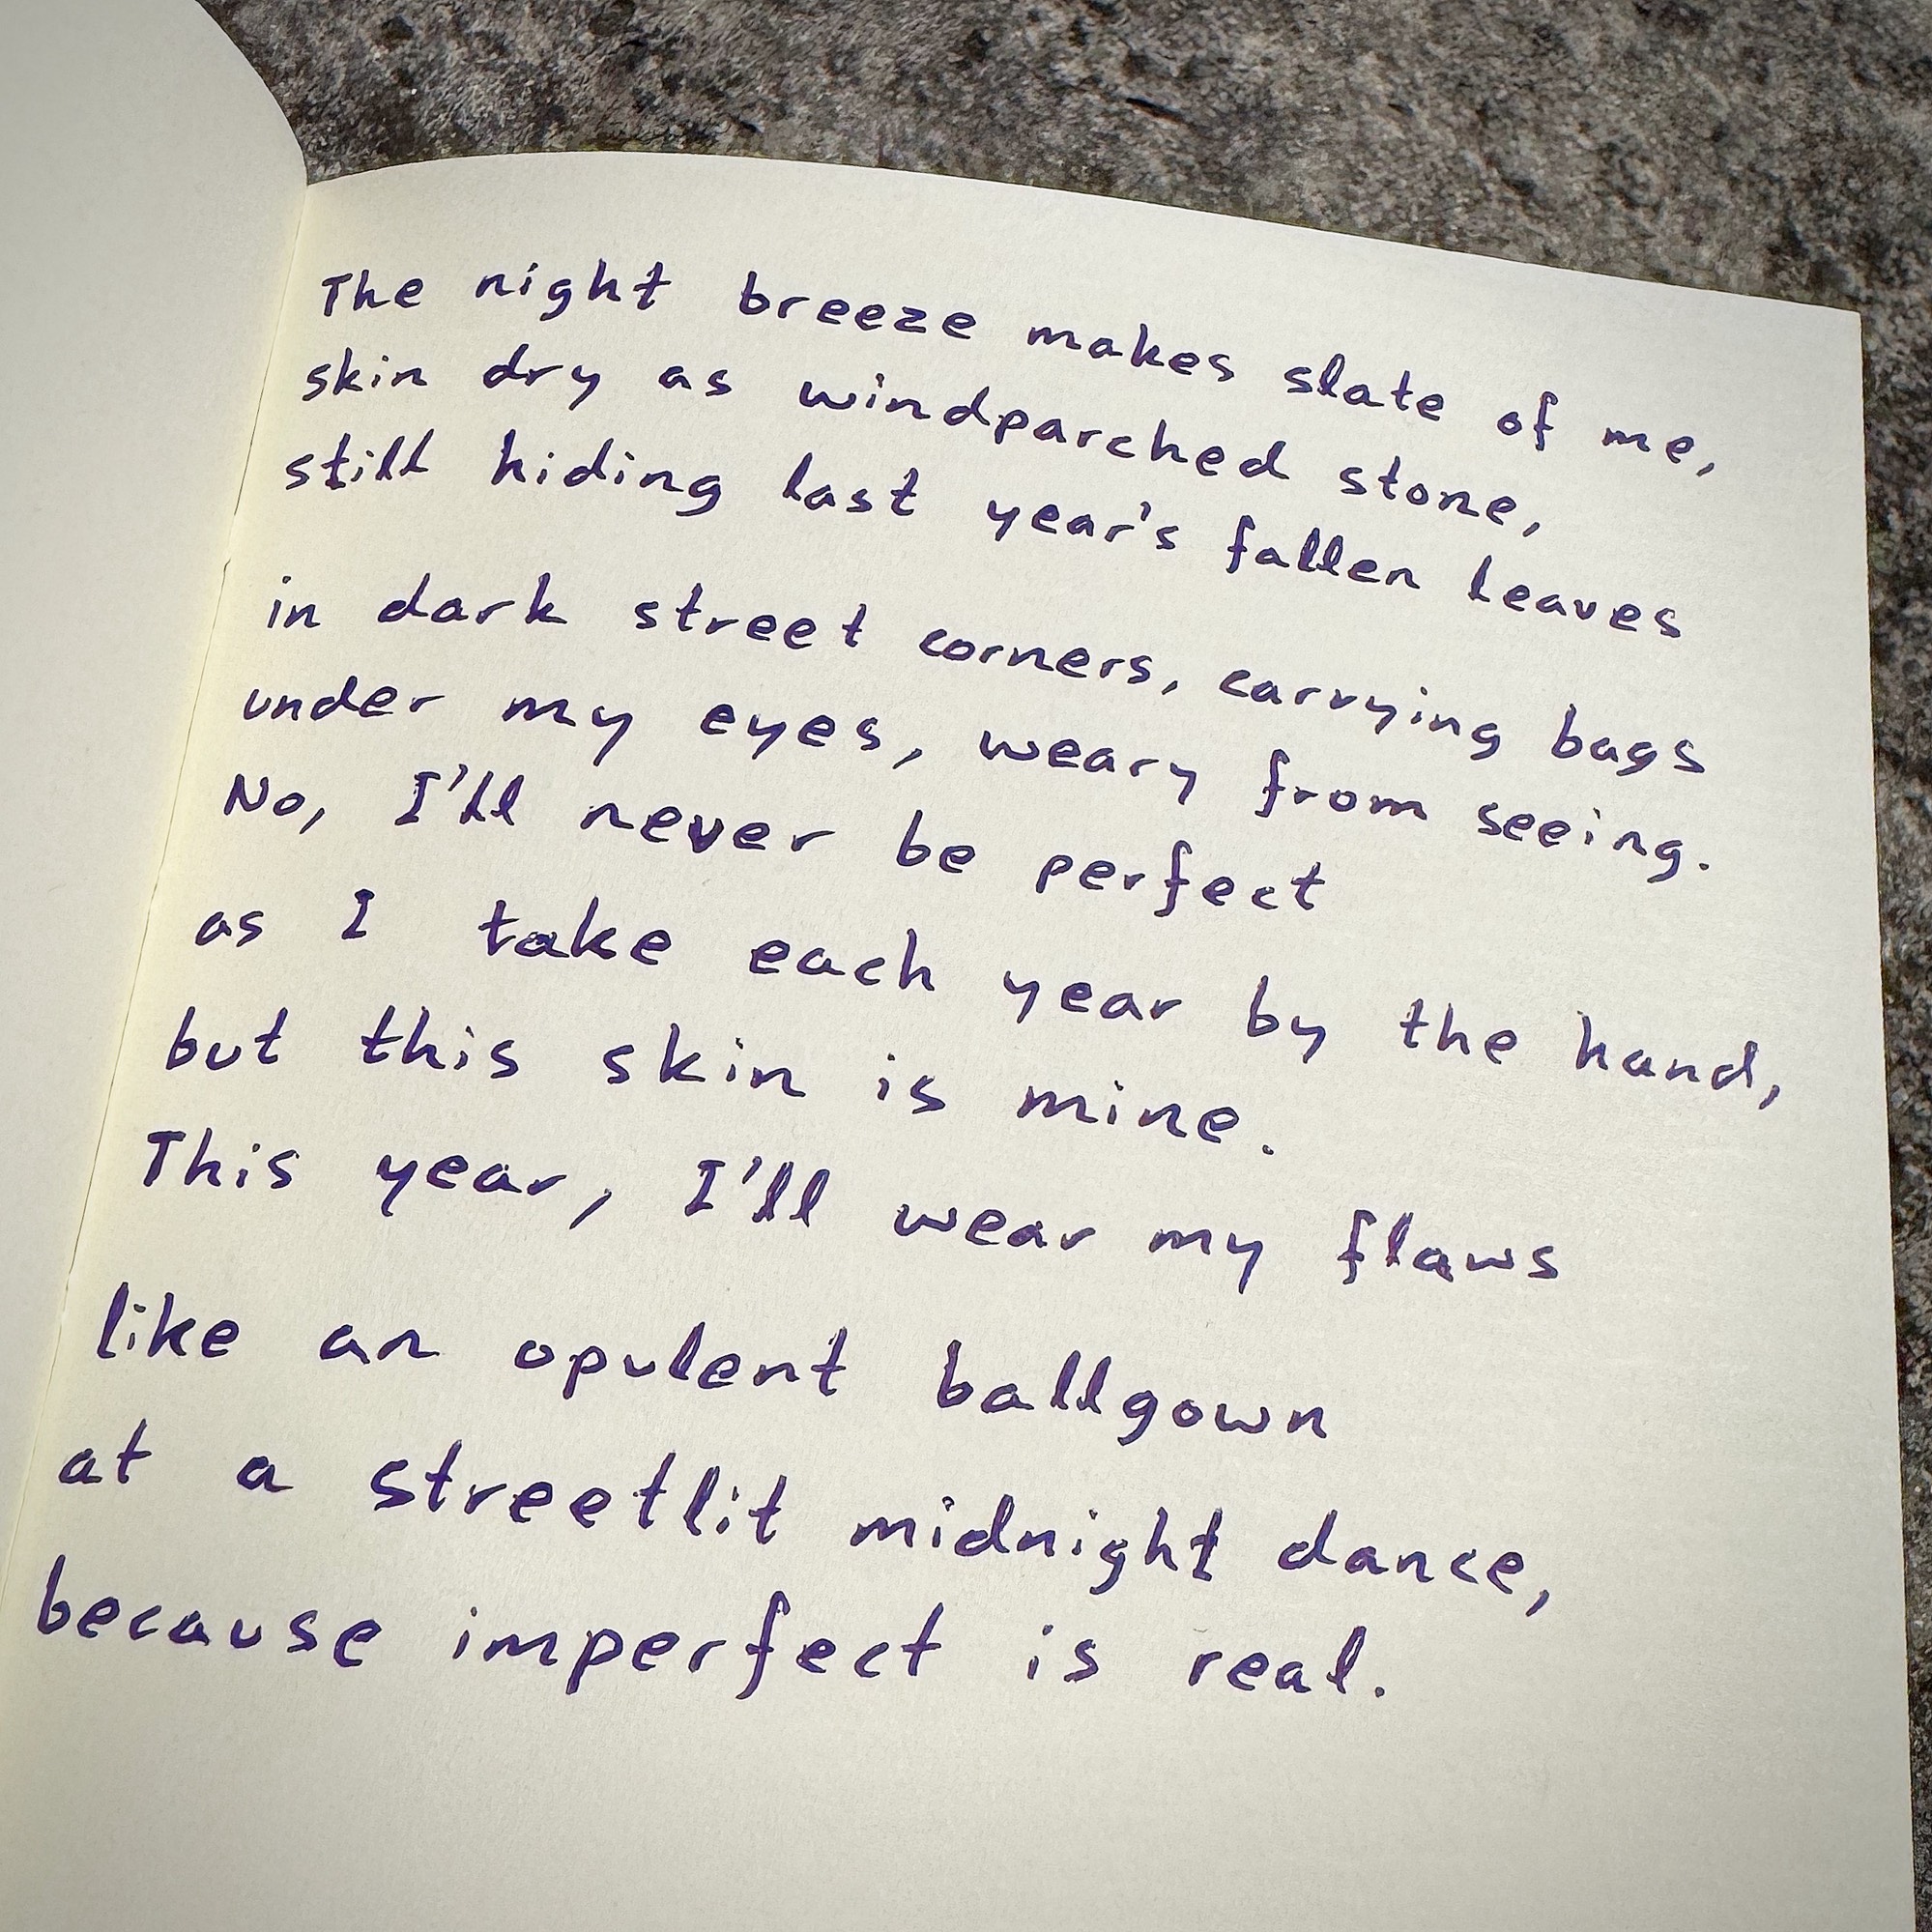 The night breeze makes slate of me,
skin dry as windparched stone,
still hiding last year's fallen leaves
in dark street corners, carrying bags
under my eyes, weary from seeing.
No, I'll never be perfect
as I take each year by the hand,
but this skin is mine.
This year, I'll wear my flaws
like an opulent ballgown
at a streetlit midnight dance,
because imperfect is real.